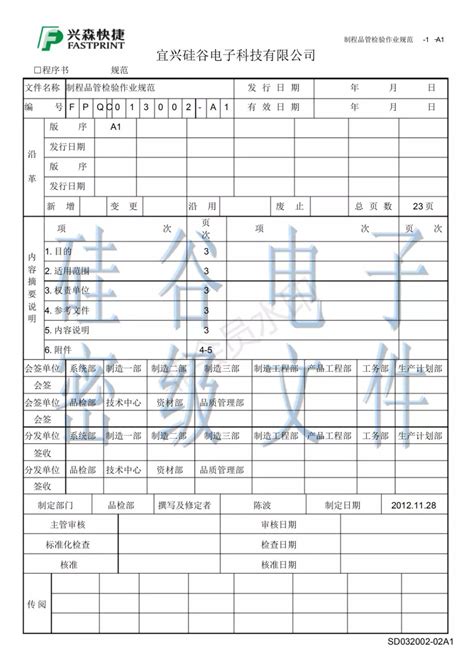 兴森快捷
FASTPRINT
制程品管检验作业规范 -1 -A1
宜兴硅谷电子科技有限公司
□程序书 规范
文件名称 制程品管检验作业规范 发行日期 年 月 日
编 号 F P QC 0 1 3 0 0 2 - A 1 有效日期 年 月 日
沿革
版 序 A1
发行日期
版 序
发行日期
新 增 变 更 沿 用 废 止 总页数 23页
内容摘要说明
项 次 页次 项 次 页次
1. 目的 3
2. 适用范围 3
3. 权贵单位 3
4. 参考文件 3
5. 内容说明 3
6. 附件 4-5
会签单位 系统部 制造一部 制造二部 制造三部 制造工程部 产品工程部 工务部 生产计划部
会签
会签单位 品检部 技术中心 资材部 品质管理部
会签
分发单位 系统部 制造一部 制造二部 制造三部 制造工程部 产品工程部 工务部 生产计划部
签收
分发单位 品检部 技术中心 资材部 品质管理部
签收
制定部门 品检部 撰写及修定者 陈波 制定日期 2012.11.28
主管审核 审核日期
标准化检查 检查日期
核准 核准日期
传阅
SD032002-02A1
硅谷电子
密级文件